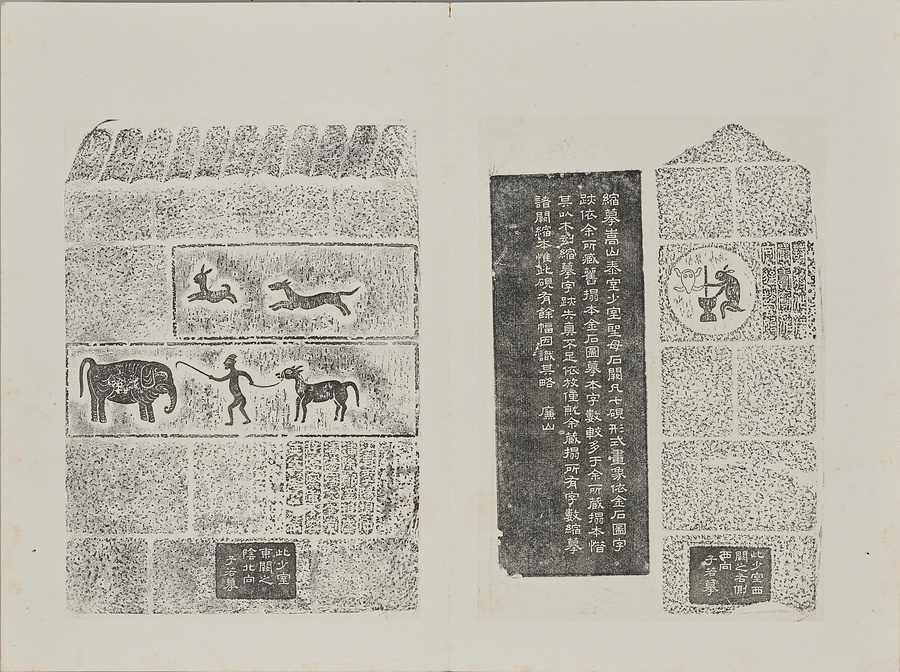 此少室西
闕之右側
西向
子若摹
縮摹嵩山泰室少室聖母石闕凡七硯形式畫象依金石圖字
跡依余所藏舊搨本金石圖摹本字數較多于余所藏搨本惜
其以不刻縮摹字跡失真不足依放僅就余藏搨所有字數縮摹
諸闕縮本惟此硯有餘幅因識其略 廉山
此少室
東闕之
陰北向
子若摹